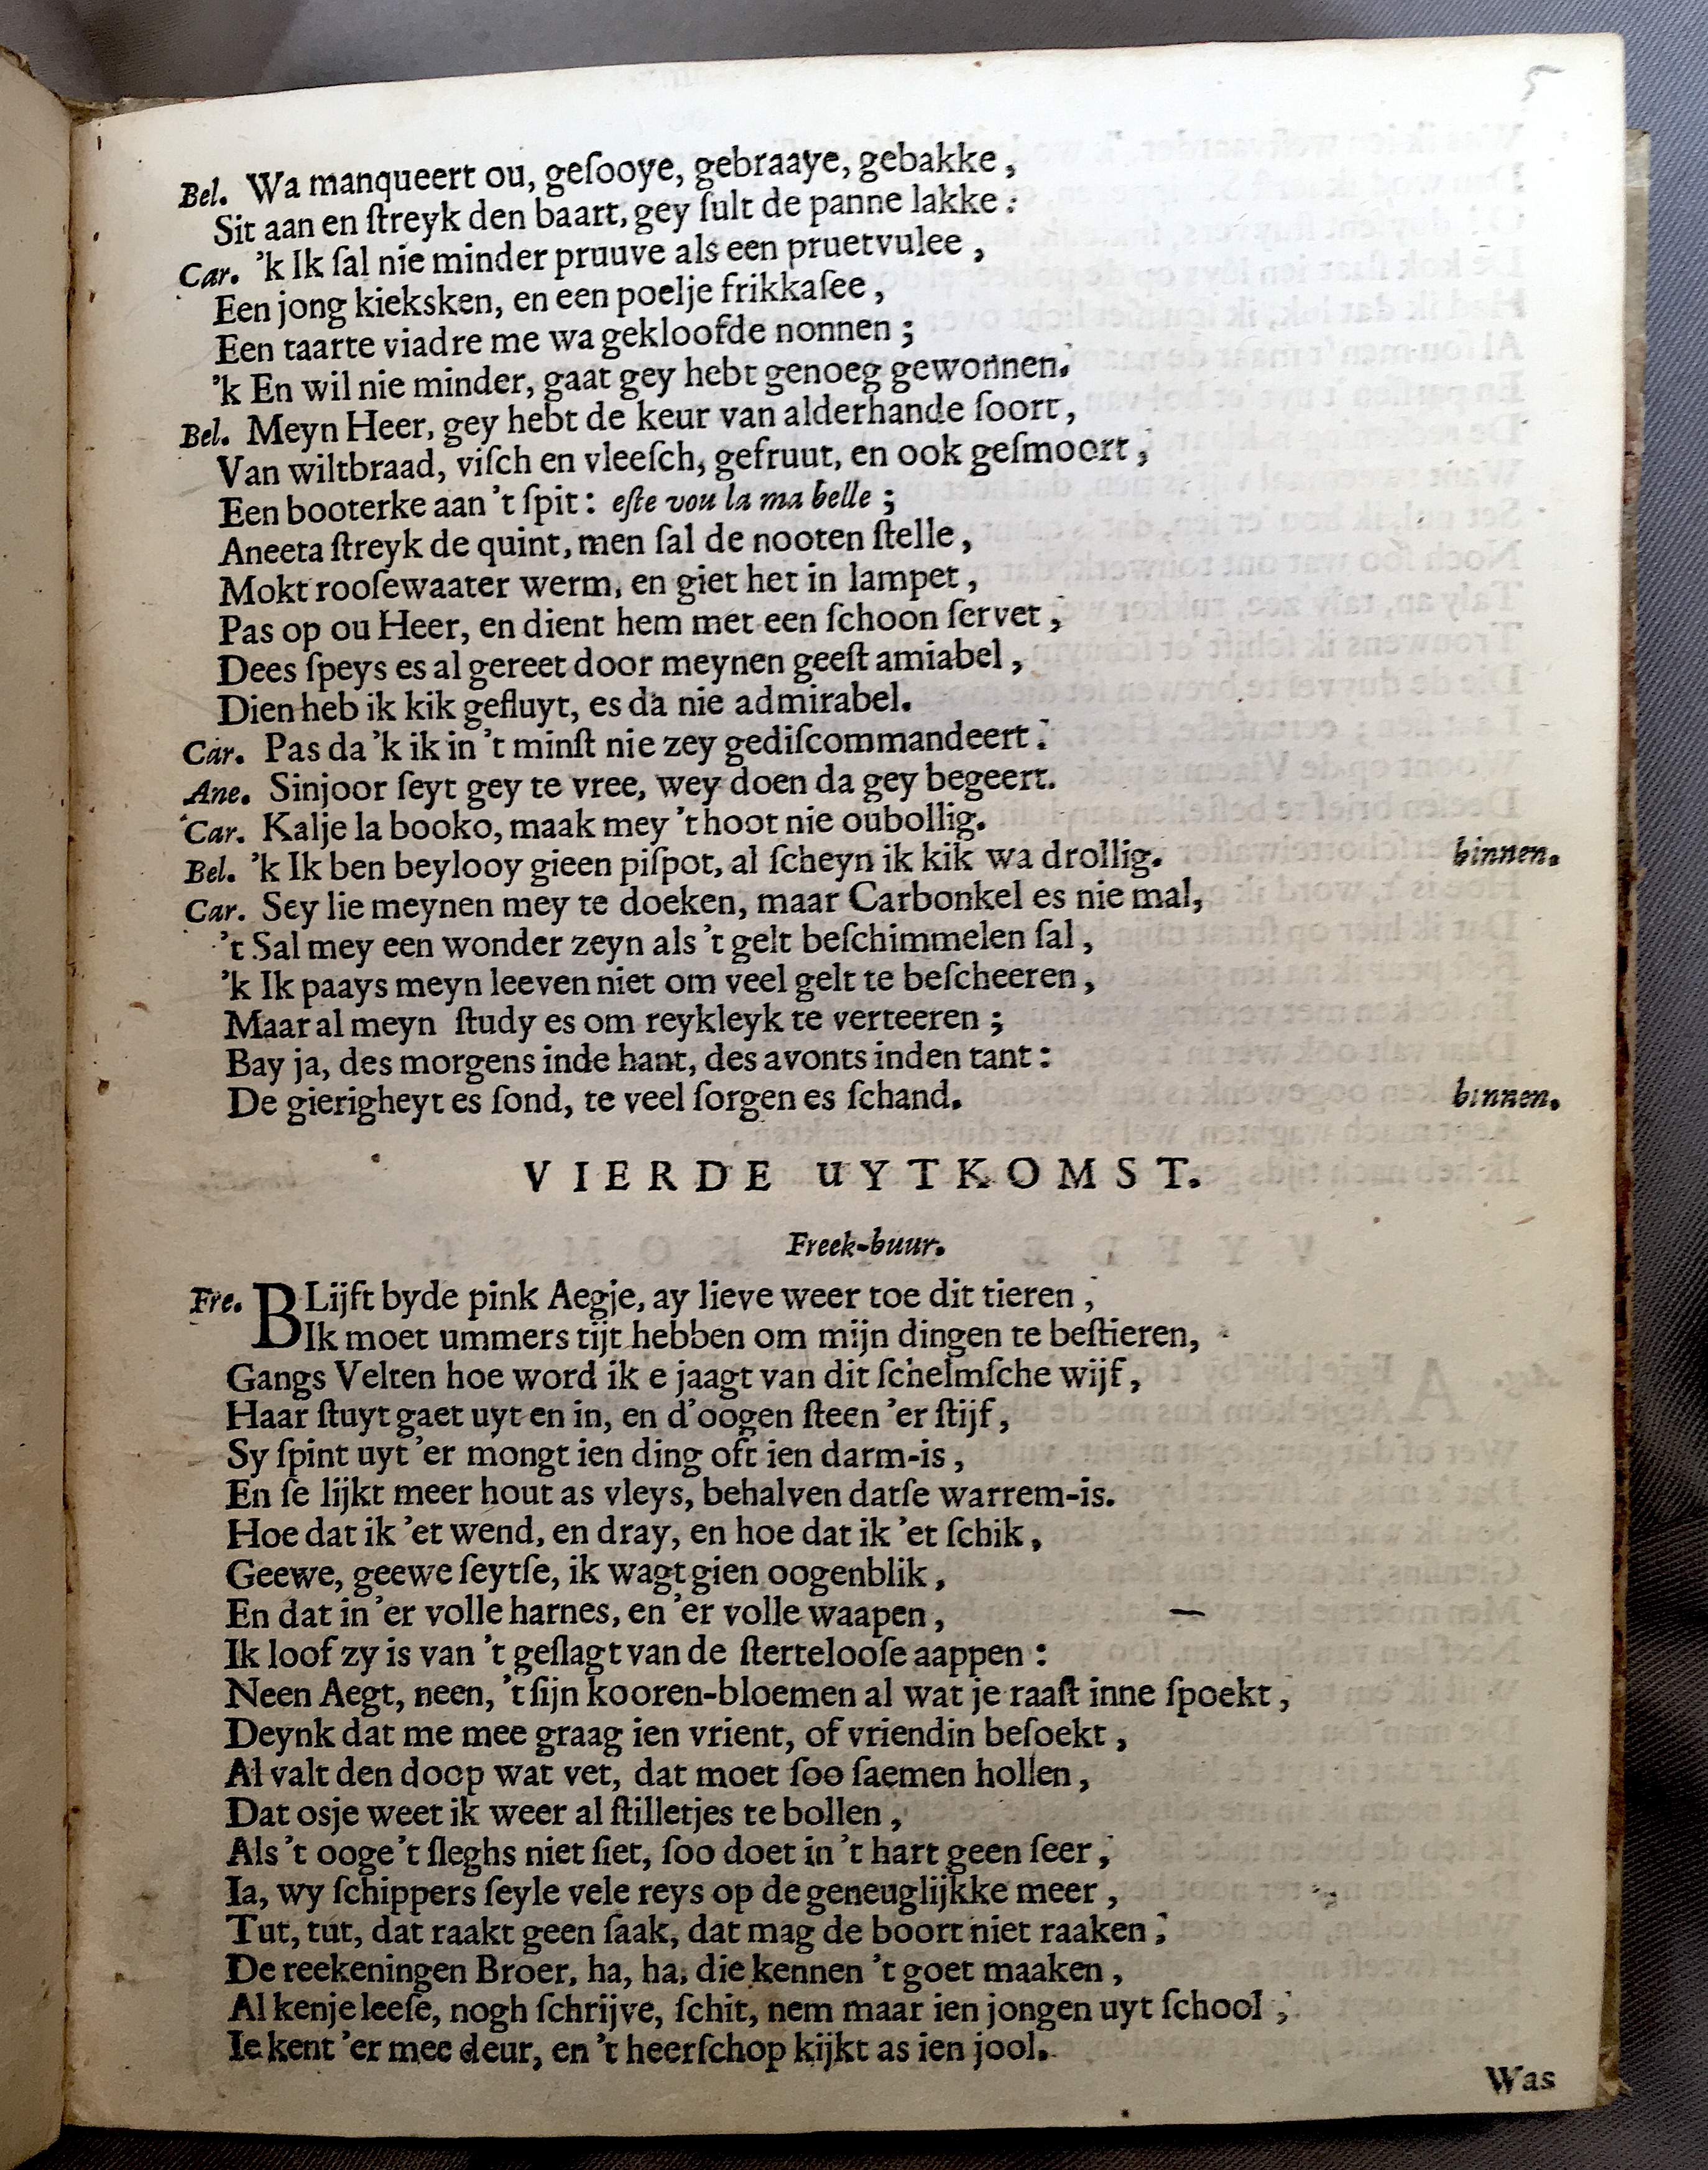 5
Bel. Wa manqueert ou, geſooye, gebraaye, gebakke,
Sit aan en ſtreyk den baart, gey ſult de panne lakke:
Car. 'k Ik ſal nie minder pruuve als een pruetvulee,
Een jong kieksken, en een poelje frikkaſee,
Een taarte viadre me wa gekloofde nonnen;
'k En wil nie minder, gaat gey hebt genoeg gewonnen.
Bel. Meyn Heer, gey hebt de keur van alderhande ſoort,
Van wiltbraad, viſch en vleeſch, gefruut, en ook geſmoort,
Een booterke aan 't ſpit: eſte vou la ma belle;
Aneeta ſtreyk de quint, men ſal de nooten ſtelle,
Mokt rooſewaater werm, en giet het in lampet,
Pas op ou Heer, en dient hem met een ſchoon ſervet,
Dees ſpeys es al gereet door meynen geeſt amiabel,
Dien heb ik kik gefluyt, es da nie admirabel.
Car. Pas da 'k ik in 't minſt nie zey gediſcommandeert.
Ane. Sinjoor ſeyt gey te vree, wey doen da gey begeert.
Car. Kalje la booko, maak mey 't hoot nie oubollig.
Bel. 'k Ik ben beylooy gieen piſpot, al ſcheyn ik kik wa drollig. binnen.
Car. Sey lie meynen mey te doeken, maar Carbonkel es nie mal,
't Sal mey een wonder zeyn als 't gelt beſchimmelen ſal,
'k Ik paays meyn leeven niet om veel gelt te beſcheeren,
Maar al meyn ſtudy es om reykleyk te verteeren;
Bay ja, des morgens inde hant, des avonts inden tant:
De gierigheyt es ſond, te veel ſorgen es ſchand. binnen.
VIERDE UYTKOMST.
Freek-buur.
Fre. BLijft byde pink Aegje, ay lieve weer toe dit tieren,
Ik moet ummers tijt hebben om mijn dingen te beſtieren,
Gangs Velten hoe word ik e jaagt van dit ſchelmſche wijf,
Haar ſtuyt gaet uyt en in, en d'oogen ſteen 'er ſtijf,
Sy ſpint uyt 'er mongt ien ding oft ien darm-is,
En ſe lijkt meer hout as vleys, behalven datſe warrem-is.
Hoe dat ik 'et wend, en dray, en hoe dat ik 'et ſchik,
Geewe, geewe ſeytſe, ik wagt gien oogenblik,
En dat in 'er volle harnes, en 'er volle waapen,
Ik loof zy is van 't geſlagt van de ſterteleoſe aappen:
Neen Aegt, neen, 't ſijn kooren-bloemen al wat je raaſt inne ſpoekt,
Deynk dat me mee graag ien vrient, of vriendin beſoekt,
Al valt den doop wat vet, dat moet ſoo ſaemen hollen,
Dat osje weet ik weer al ſtilletjes te bollen,
Als 't ooge 't ſleghs niet ſiet, ſoo doet in 't hart geen ſeer,
Ia, wy ſchippers ſeyle vele reys op de geneuglijkke meer,
Tut, tut, dat raakt geen ſaak, dat mag de boort niet raaken;
De reekeningen Broer, ha, ha, die kennen 't goet maaken,
Al kenje leeſe, nogh ſchrijve, ſchit, nem maar ien jongen uyt ſchool;
Ie kent 'er mee deur, en 't heerſchop kijkt as ien jool.
Was